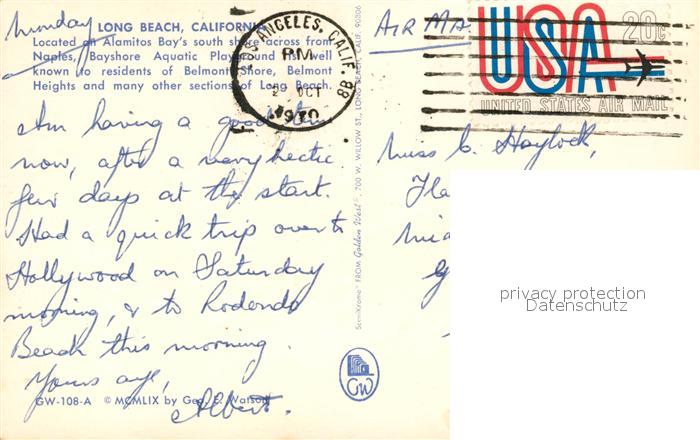 Monday
LONG BEACH, CALIFORNIA
Located on Alamitos Bay's south shore across from
Naples, Bayshore Aquatic Playground is well
known to residents of Belmont Shore, Belmont
Heights and many other sections of Long Beach.
Am having a good time
now, after a very hectic
few days at the start.
Had a quick trip over to
Hollywood on Saturday
morning, & to Redondo
Beach this morning.
Yours aye,
Albert.
GW-108-A © MCMLIX by Geo. E. Watson
ScenicKrome FROM Golden West, 700 W. WILLOW ST., LONG BEACH, CALIF. 90806
GW
LOS ANGELES, CALIF. 88
PM
2 OCT
1970
AIR MAIL
USA 20c
UNITED STATES AIR MAIL
Miss C. Haylock,
privacy protection
Datenschutz